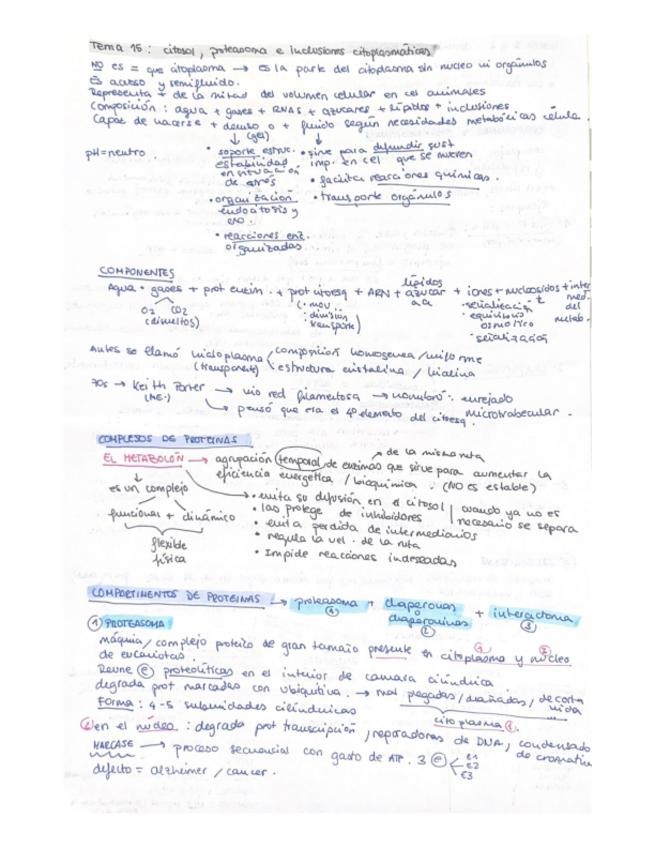 Tema 15: citosol, proteasoma e inclusiones citoplasmáticas
NO es = que citoplasma → es la parte del citoplasma sin nucleo ni orgánulos
Es acuoso y semifluido.
Representa + de la mitad del volumen celular en cel animales
Composición: agua + gases + RNAs + azucares + lípidos + inclusiones
Capaz de hacerse + denso o + fluido según necesidades metabólicas célula.
(gel)
pH=neutro
• soporte estruc.
estabilidad
en situación
de estrés
• organización
endocitosis y
exo.
• reacciones enz.
organizadas
• sirve para difundir sust
imp. en cel que se mueven
• facilita reacciones químicas.
• transporte orgánulos
COMPONENTES
Agua + gases + prot enzim. + prot citoesq + ARN + lípidos azucar aa + iones + nucleósidos + inter med. del metab.
O2 CO2
(disueltos)
(• mov
• división
transporte)
• señalización
• equilibrio
osmótico
• señalización
Antes se llamó hialoplasma / composición homogenea / uniforme
(transparente) estructura cristalina / hialina
70s → Keith Porter → vio red filamentosa → nombró: enrejado
(ME.) → pensó que era el 4º elemento del citoesq. microtrabecular.
COMPLEJOS DE PROTEINAS
EL METABOLÓN → agrupación temporal de enzimas que sirve para aumentar la
→ de la misma ruta
eficiencia energética / bioquímica. (NO es estable)
es un complejo
funcional + dinámico
flexible
física
• evita su difusión en el citosol
• las protege de inhibidores
• evita perdida de intermediarios
• regula la vel. de la ruta
• Impide reacciones indeseadas
cuando ya no es
necesario se separa
COMPARTIMENTOS DE PROTEINAS → proteasoma + chaperonas o chaperoninas + interactoma
① ② ③
① PROTEASOMA
máquina / complejo proteico de gran tamaño presente en citoplasma y núcleo
① ②
de eucariotas.
Reune (e) proteolíticas en el interior de camara cilíndrica
degrada prot marcadas con ubiquitina. → mal plegadas / dañadas / de corta
vida
Forma: 4-5 subunidades cilíndricas
citoplasma ①.
② en el núcleo: degrada prot transcripción, reparadoras de DNA, condensado
de cromatina
MARCASE → proceso secuencial con gasto de ATP. 3 (e) E1
E2
E3
defecto = alzheimer / cancer.